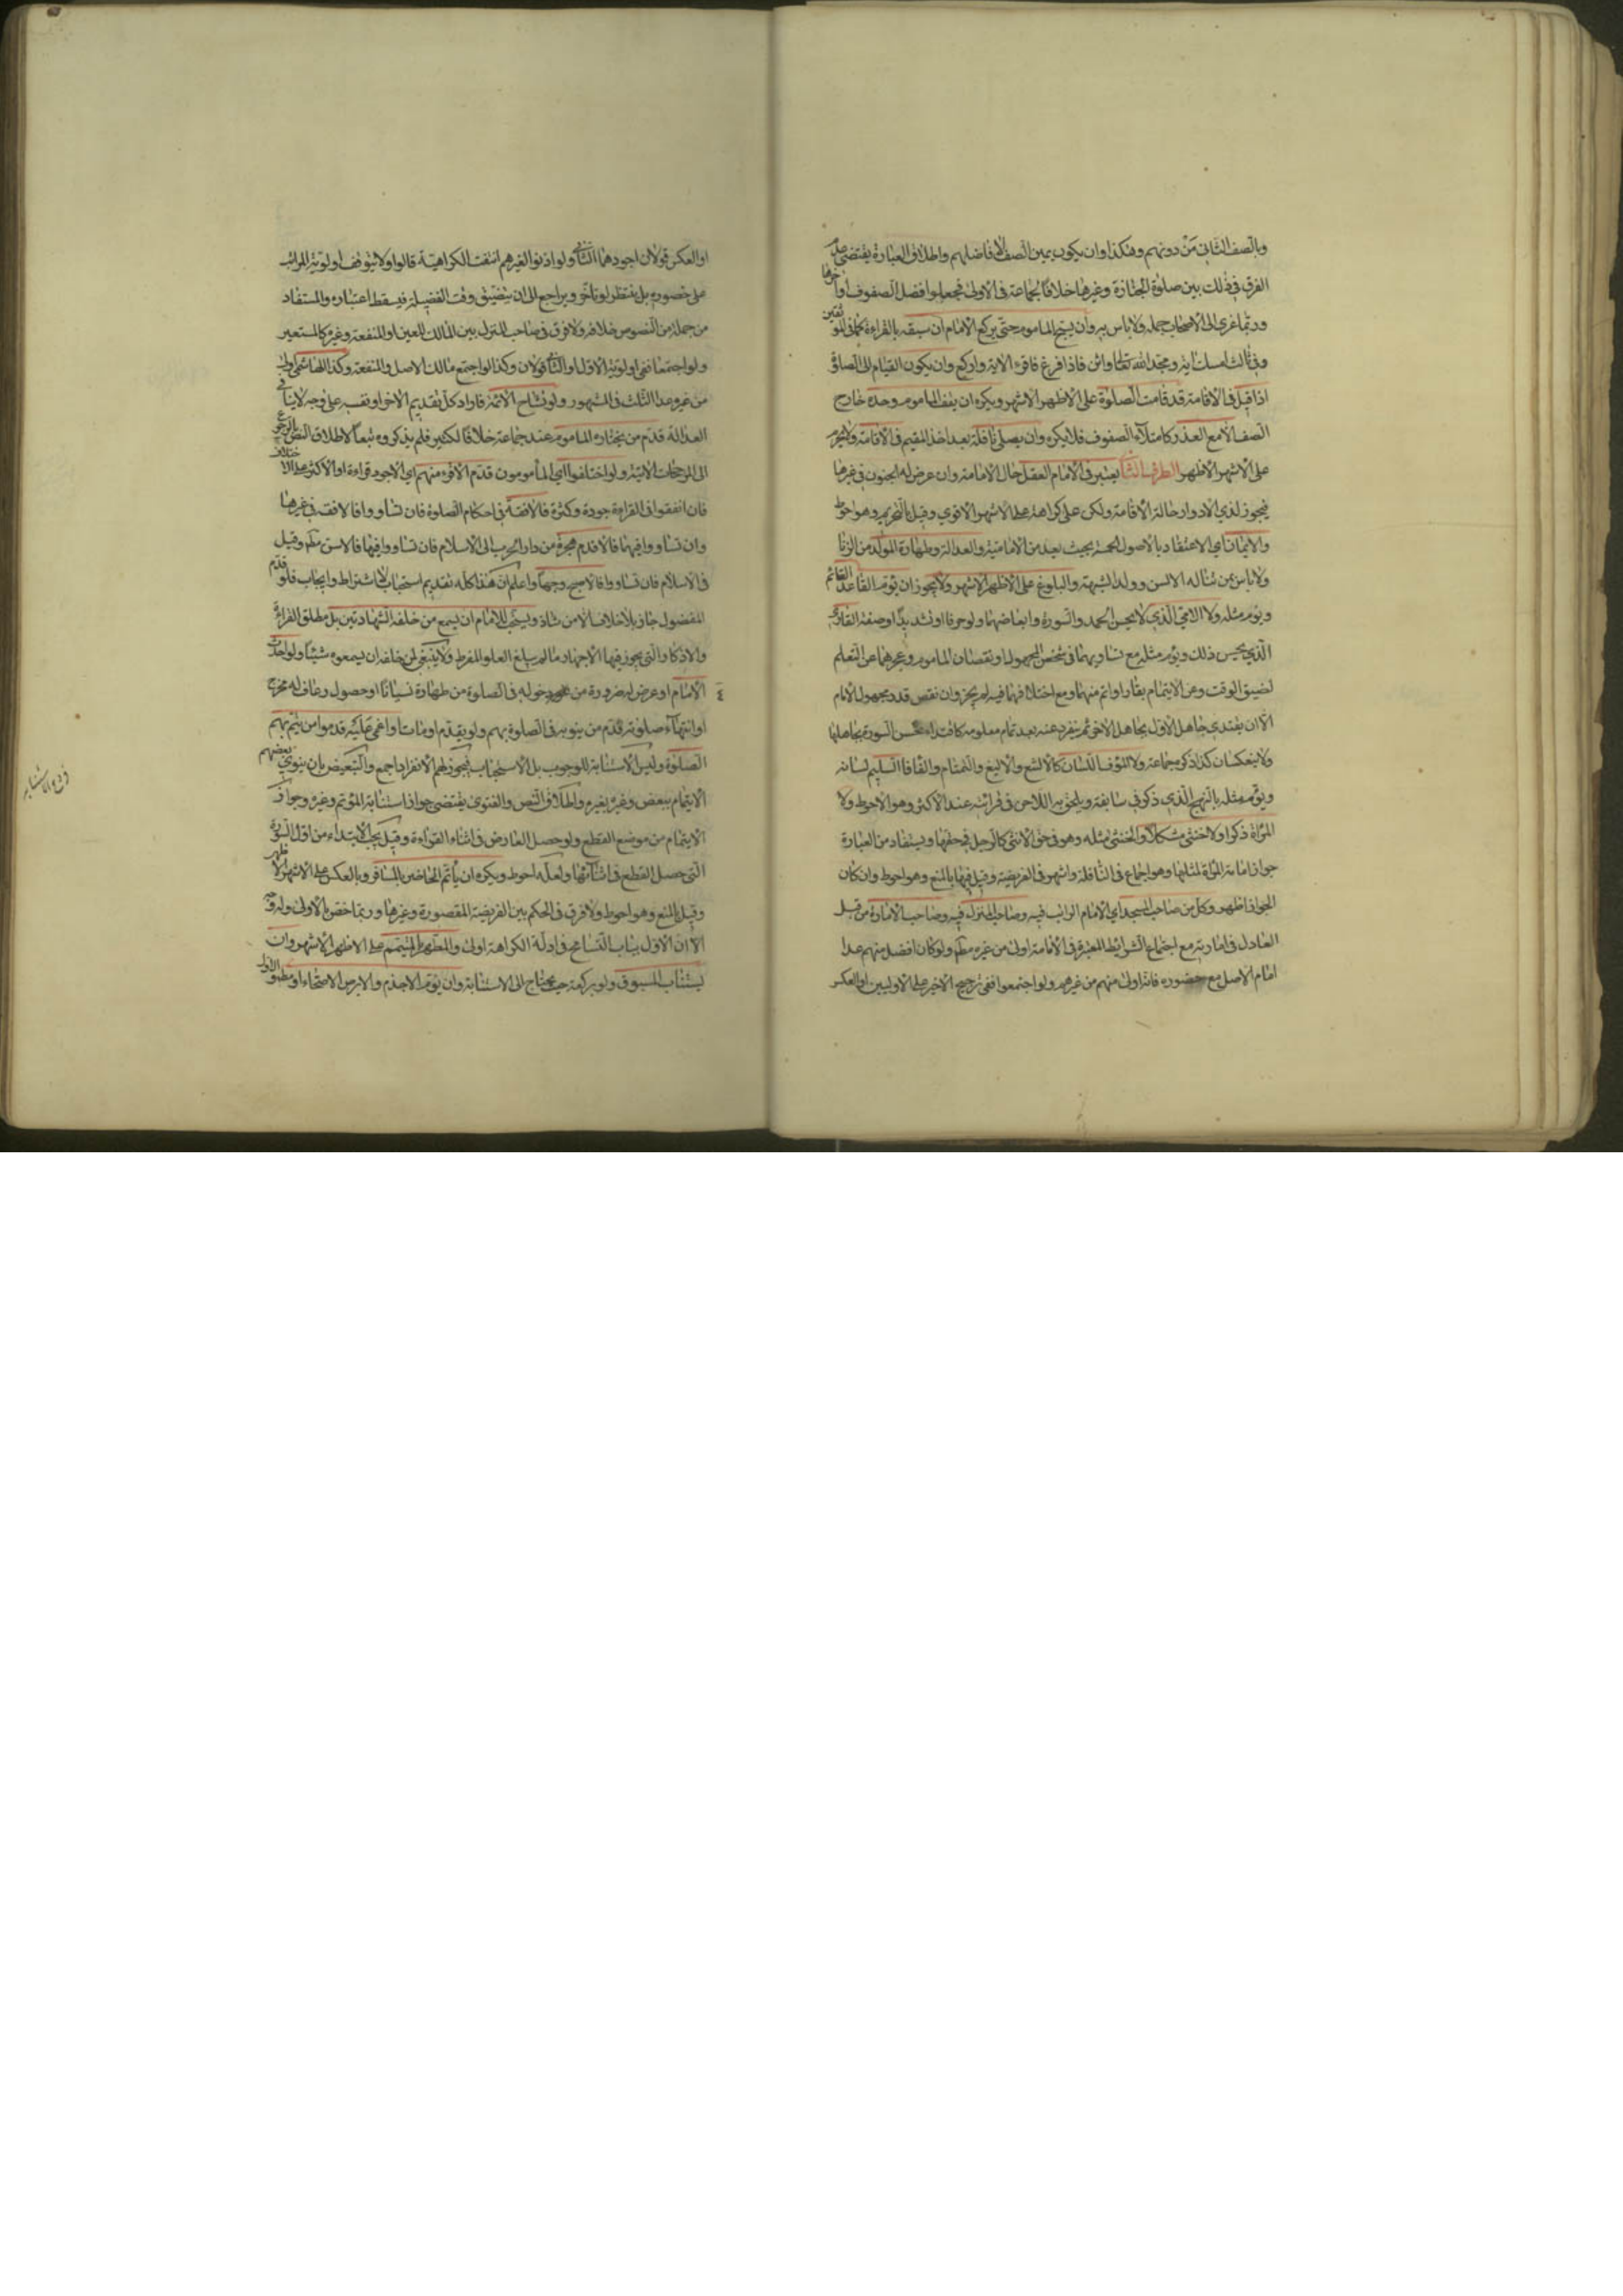 وبالصف الثانى مَنْ دونهم وهكذا وان يكون يمين الصف لافاضلهم واطلاق العبارة يقتضى عدم
الفرق فى ذلك بين صلوة الجنازة وغيرها خلافًا لجماعة فى الاولى فجعلوا افضل الصفوف اواخرها
وربما عزى الى الاصحاب جملة ولا باس به وأن يسبّح الماموم حتى يركع الامام ان سبقه بالقراءة كما فى الموثقين
وفى ثالث امسك اية ومجّد الله تعالى واثن فاذا فرغ فاقرء الاية واركع وان يكون القيام الى الصلوة
اذا قيل فى الاقامة قد قامت الصلوة على الاظهر الاشهر ويكره ان يقف الماموم وحده خارج
الصف الا مع العذر كامتلاء الصفوف فلا يكره وان يصلى نافلة بعد اخذ المقيم فى الاقامة ولا يحرم
على الاشهر الاظهر الطرف الثانى يعتبر فى الامام العقل حال الامامة وان عرض له الجنون فى غيرها
فيجوز لذى الادوار حالة الافاقة ولكن على كراهة على الاشهر الاقوى وقيل بالتحريم وهو احوط
والايمان اى الاعتقاد بالاصول الخمسة بحيث يعد من الامامية والعدالة وطهارة المولد من الزنا
ولا باس بمن تناله الالسن وولد الشبهة والبلوغ على الاظهر الاشهر ولا يجوز ان يؤم القاعد القائم
ويؤم مثله ولا الامى الذى لا يحسن الحمد والسورة او ابعاضهما ولو حرفا او تشديدًا او صفة القارئ
الذى يحسن ذلك ويؤم مثله مع تساويهما فى شخص المجهول او نقصان الماموم وعجزهما عن التعلم
لضيق الوقت وعن الايتمام بقارء او اتم منهما ومع اختلافهما فيه لم يجز وان نقص قدر مجهول الامام
الا ان يقتدى جاهل الاول بجاهل الاخر ثم ينفرد عنه بعد تمام معلومه كاقتداء محسن السورة بجاهلها
ولا ينعكسان كذا ذكره جماعة ولا المؤف اللسان كالالثغ والاليغ والتمتام والفافا السليم لسانه
ويؤم مثله بالنهج الذى ذكر فى سابقه ويلحق به اللاحن فى قرائته عند الاكثر وهو الاحوط ولا
المرأة ذكرا ولا خنثى مشكلا والخنثى مثله وهو فى حق الانثى كالرجل فى حقها ويستفاد من العبارة
جواز امامة المراة لمثلها وهو اجماع فى النافلة واشهر فى الفريضة وقيل فيها بالمنع وهو احوط وان كان
الجواز اظهر وكل من صاحب المسجد اى الامام الراتب فيه وصاحب المنزل فيه وصاحب الامارة من قبل
العادل فى امارته مع اجتماع الشرائط المعتبرة فى الامامة اولى من غيره مطلقا ولو كان افضل منهم عدا
امام الاصل مع حضوره فانه اولى منهم من غيرهم ولو اجتمعوا ففى ترجيح الاخير على الاوليين او العكس
او العكس قولان اجودهما الثانى ولو اذنوا لغيرهم انتفت الكراهية قالوا ولا يتوقف اولوية الراتب
على حضوره بل ينتظر لو تاخر ويراجع الى ان يتضيق وقت الفضيلة فيسقط اعتباره والمستفاد
من جملة من النصوص خلافه ولا فرق فى صاحب المنزل بين المالك للعين او المنفعة وغيره كالمستعير
ولو اجتمعا ففى اولوية الاول او الثانى قولان وكذا لو اجتمع مالك الاصل والمنفعة وكذا الهاشمى اولى
من غيره عدا الثلث فى المشهور ولو تشاح الائمة فاراد كل تقديم الاخر او نفسه على وجه لا ينافى
العدالة قدّم من يختاره الماموم عند جماعة خلافًا لكثير فلم يذكروه تبعاً لاطلاق النص بالرجوع
الى المرجحات الاتية ولو اختلفوا اى المأمومون قدم الاقرء منهم اى الاجود قراءة او الاكثر على الاختلاف
فان اتفقوا فى القراءة جودة وكثرة فالافقه فى احكام الصلوة فان تساووا فالافقه فى غيرها
وان تساووا فيهما فالاقدم هجرة من دار الحرب الى الاسلام فان تساووا فيها فالاسن مطلقا وقيل
فى الاسلام فان تساووا فالاصبح وجهاً واعلم ان هذا كله تقديم استحباب لا اشتراط وايجاب فلو قدّم
المفضول جاز بلا خلاف الا من شاذ ويستحب للامام ان يسمع من خلفه الشهادتين بل مطلق القراءة
والاذكار التى يجوز فيها الاجهار ما لم يبلغ العلو المفرط ولا ينبغى لمن خلفه ان يسمعوه شيئا ولو احدث
الامام او عرض له ضرورة من دخوله فى الصلوة من طهارة نسيانًا او حصول رعاف له مخرج
او انتهاء صلوته قدّم من ينوبه فى الصلوة بهم ولو لم يقدم او مات او اغمى عليه قدموا من يتم بهم
الصلوة وليس الاستنابة للوجوب بل الاستحباب فيجوز لهم الانفراد اجمع والتبعيض بان ينوى بعضهم
الايتمام ببعض وغيره بغيره واطلاق النص والفتوى يقتضى جواز استنابة المؤتم وغيره وجواز
الايتمام من موضع القطع ولو حصل العارض فى اثناء القراءة وقيل يجب الابتداء من اول السورة
التى حصل القطع فى اثنائها ولعله احوط ويكره ان يأتم الحاضر بالمسافر وبالعكس على الاشهر الاظهر
وقيل بالمنع وهو احوط ولا فرق فى الحكم بين الفريضة المقصورة وغيرها وربما اختص بالاولى وله وجه
الا ان الاول بباب التسامح فى ادلة الكراهة اولى والمتطهر بالمتيمم على الاظهر الاشهر وان
يستناب المسبوق ولو بركعة حيث يحتاج الى الاستنابة وان يؤم الاجذم والابرص الاصحاء او مطلقا